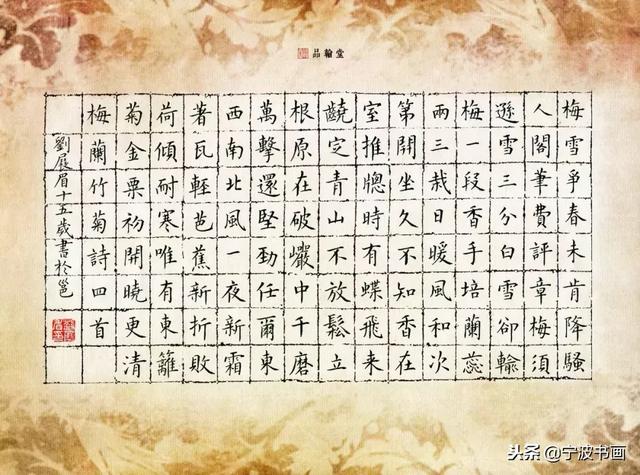 品翰堂
梅雪爭春未肯降騷
人閣筆費評章梅須
遜雪三分白雪卻輸
梅一段香手培蘭蕊
兩三栽日暖風和次
第開坐久不知香在
室推牕時有蝶飛来
齩定青山不放鬆立
根原在破巖中千磨
萬擊還堅勁任爾東
西南北風一夜新霜
著瓦輕芭蕉新折敗
荷傾耐寒唯有東籬
菊金粟初開曉更清
梅蘭竹菊詩四首
劉展眉十五歲書於邕
头条@宁波书画